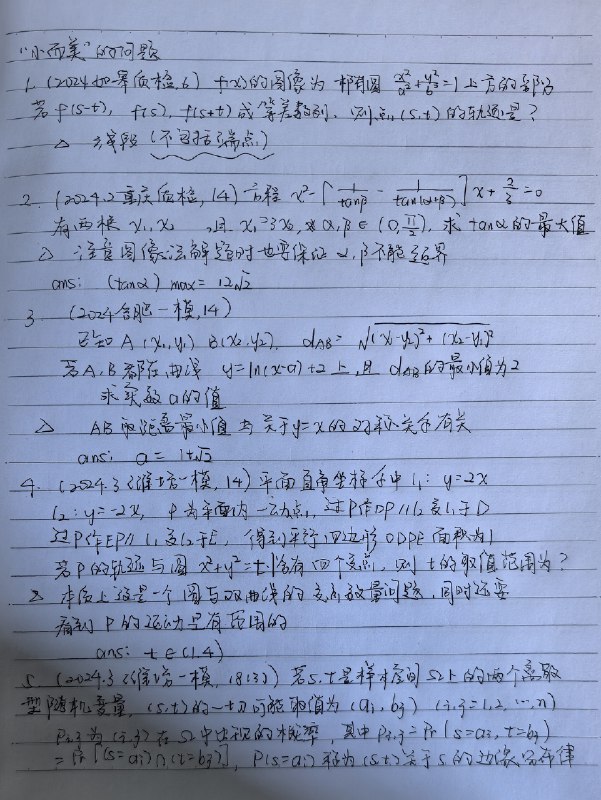 "小而美"的问题
1. (2024 质检, 6) f(x)的图像为 椭圆 x²/a²+y²/b²=1 上方的部分
若 f(s-t), f(s), f(s+t) 成等差数列, 则点(s,t) 的轨迹是?
△ 线段 (不包括端点)
2. (2024.2 重庆质检, 14) 方程 x²-[1/tanβ - 1/tan(α+β)]x+2/3=0
有两根 x₁,x₂ ,且 x₁=3x₂, α,β∈(0,π/2), 求 tanα的最大值
△ 注意图像法解题时也要保证 α,β不能越界
ans: (tanα)max = 12√2
3. (2024合肥一模,14)
已知 A(x₁,y₁) B(x₂,y₂), dAB = √(x₁-y₂)²+(x₂-y₁)²
若A,B都在曲线 y=ln(x-a)+2 上,且 dAB的最小值为2
求实数a的值
△ AB 距离最小值与关于y=x的对称关系有关
ans: a=1+√2
4. (2024.3 潍坊一模, 14) 平面直角坐标系中 l₁: y=2x
l₂: y=-2x, P为平面内一动点, 过P作DP∥l₂交l₁于D
过P作EP∥l₁交l₂于E, 得到平行四边形 ODPE 面积为1
若P的轨迹与圆 x²+y²=t 恰有四个交点, 则 t的取值范围为?
△ 本质上这是一个圆与双曲线的交点数量问题, 同时还要
看到 P的运动是有范围的
ans: t∈(1,4)
5. (2024.3 潍坊一模, 18(3)) 若s,t是样本空间Ω上的两个离散
型随机变量, (s,t)的一切可能取值为 (ai,bj) (i,j=1,2,…,n)
Pi,j为(i,j)在Ω中出现的概率, 其中 Pi,j=Pr(s=ai,t=bj)
=Pr[(s=ai)∩(t=bj)], P(s=ai)称为(s,t)关于s的边缘分布律